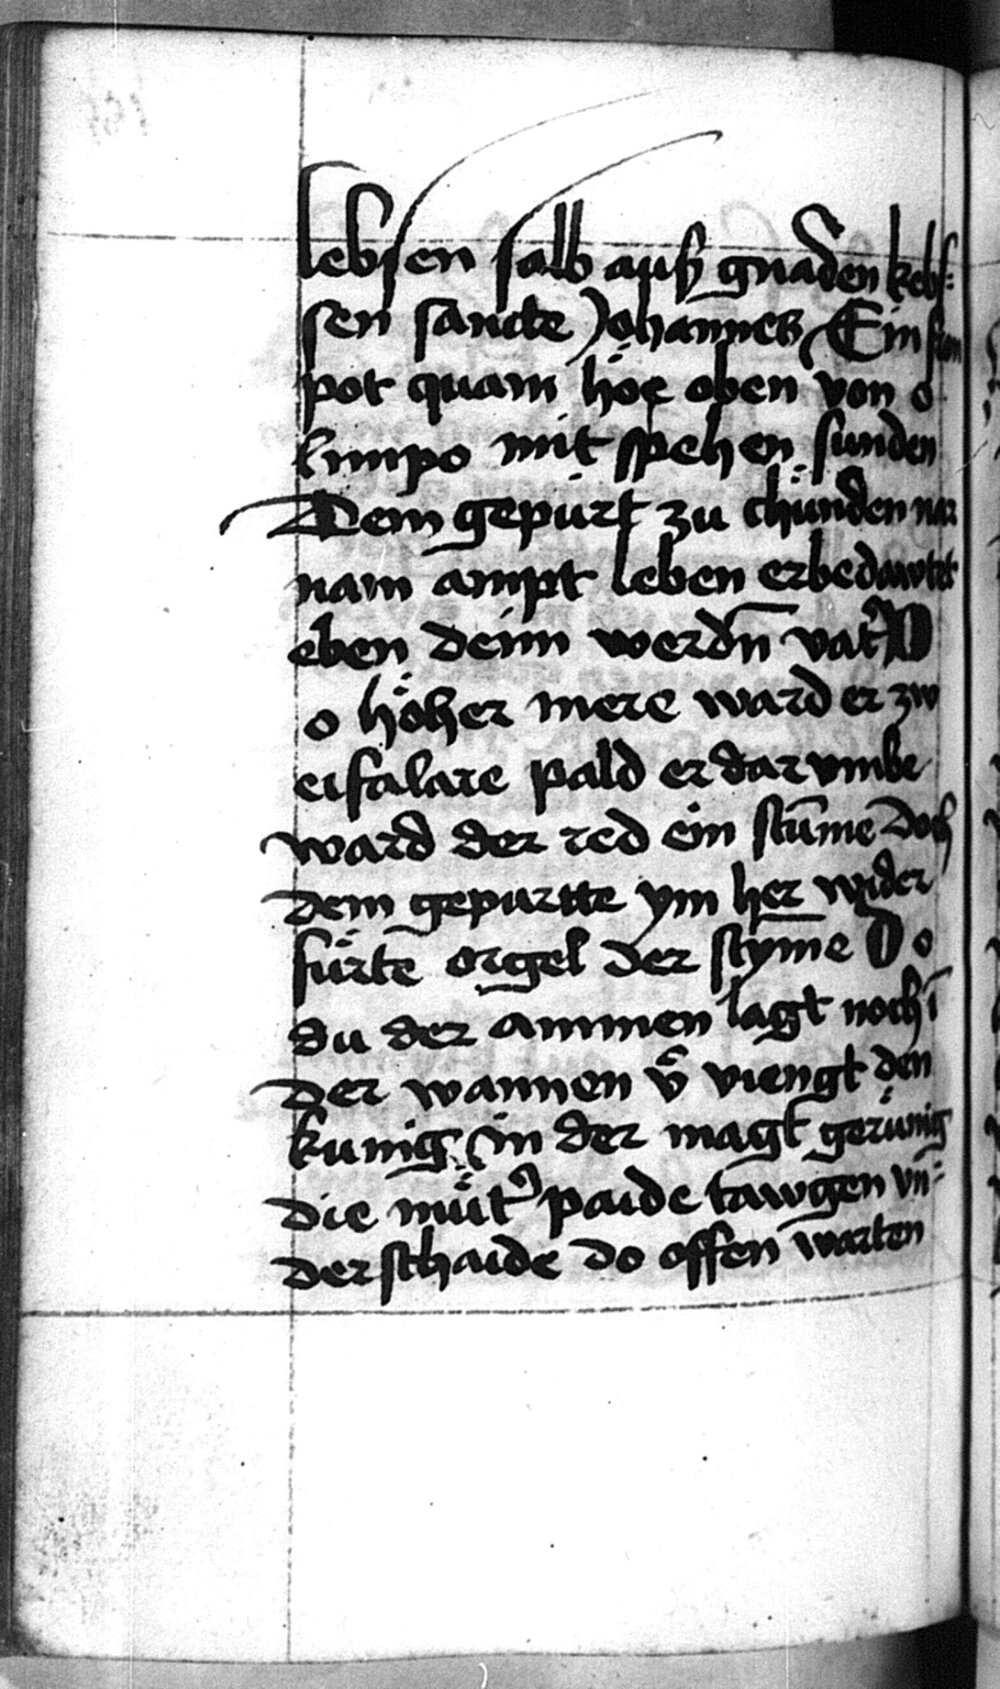 lebsen salb auß gnaden kebs:
sen sancte Johannes Ein
pot quam höe oben von o
limpo mit spehen sunden
Dem gepürt zu chünden nar
nam ampt leben erbedawtet
eben deim werdn̄ vat̓ D
o höher mere ward er zw
eifalare pald er dar vmbe
ward der red ein stūme Doch
dem gepurtte ym her wider
fürte orgel der stym̄e Do
du der ammen lagt noch ī
der wannen v̄ viengt den
kunig in der magt gerünig
die müt̓ paide tawgen vn̄
derschaide do offen warten